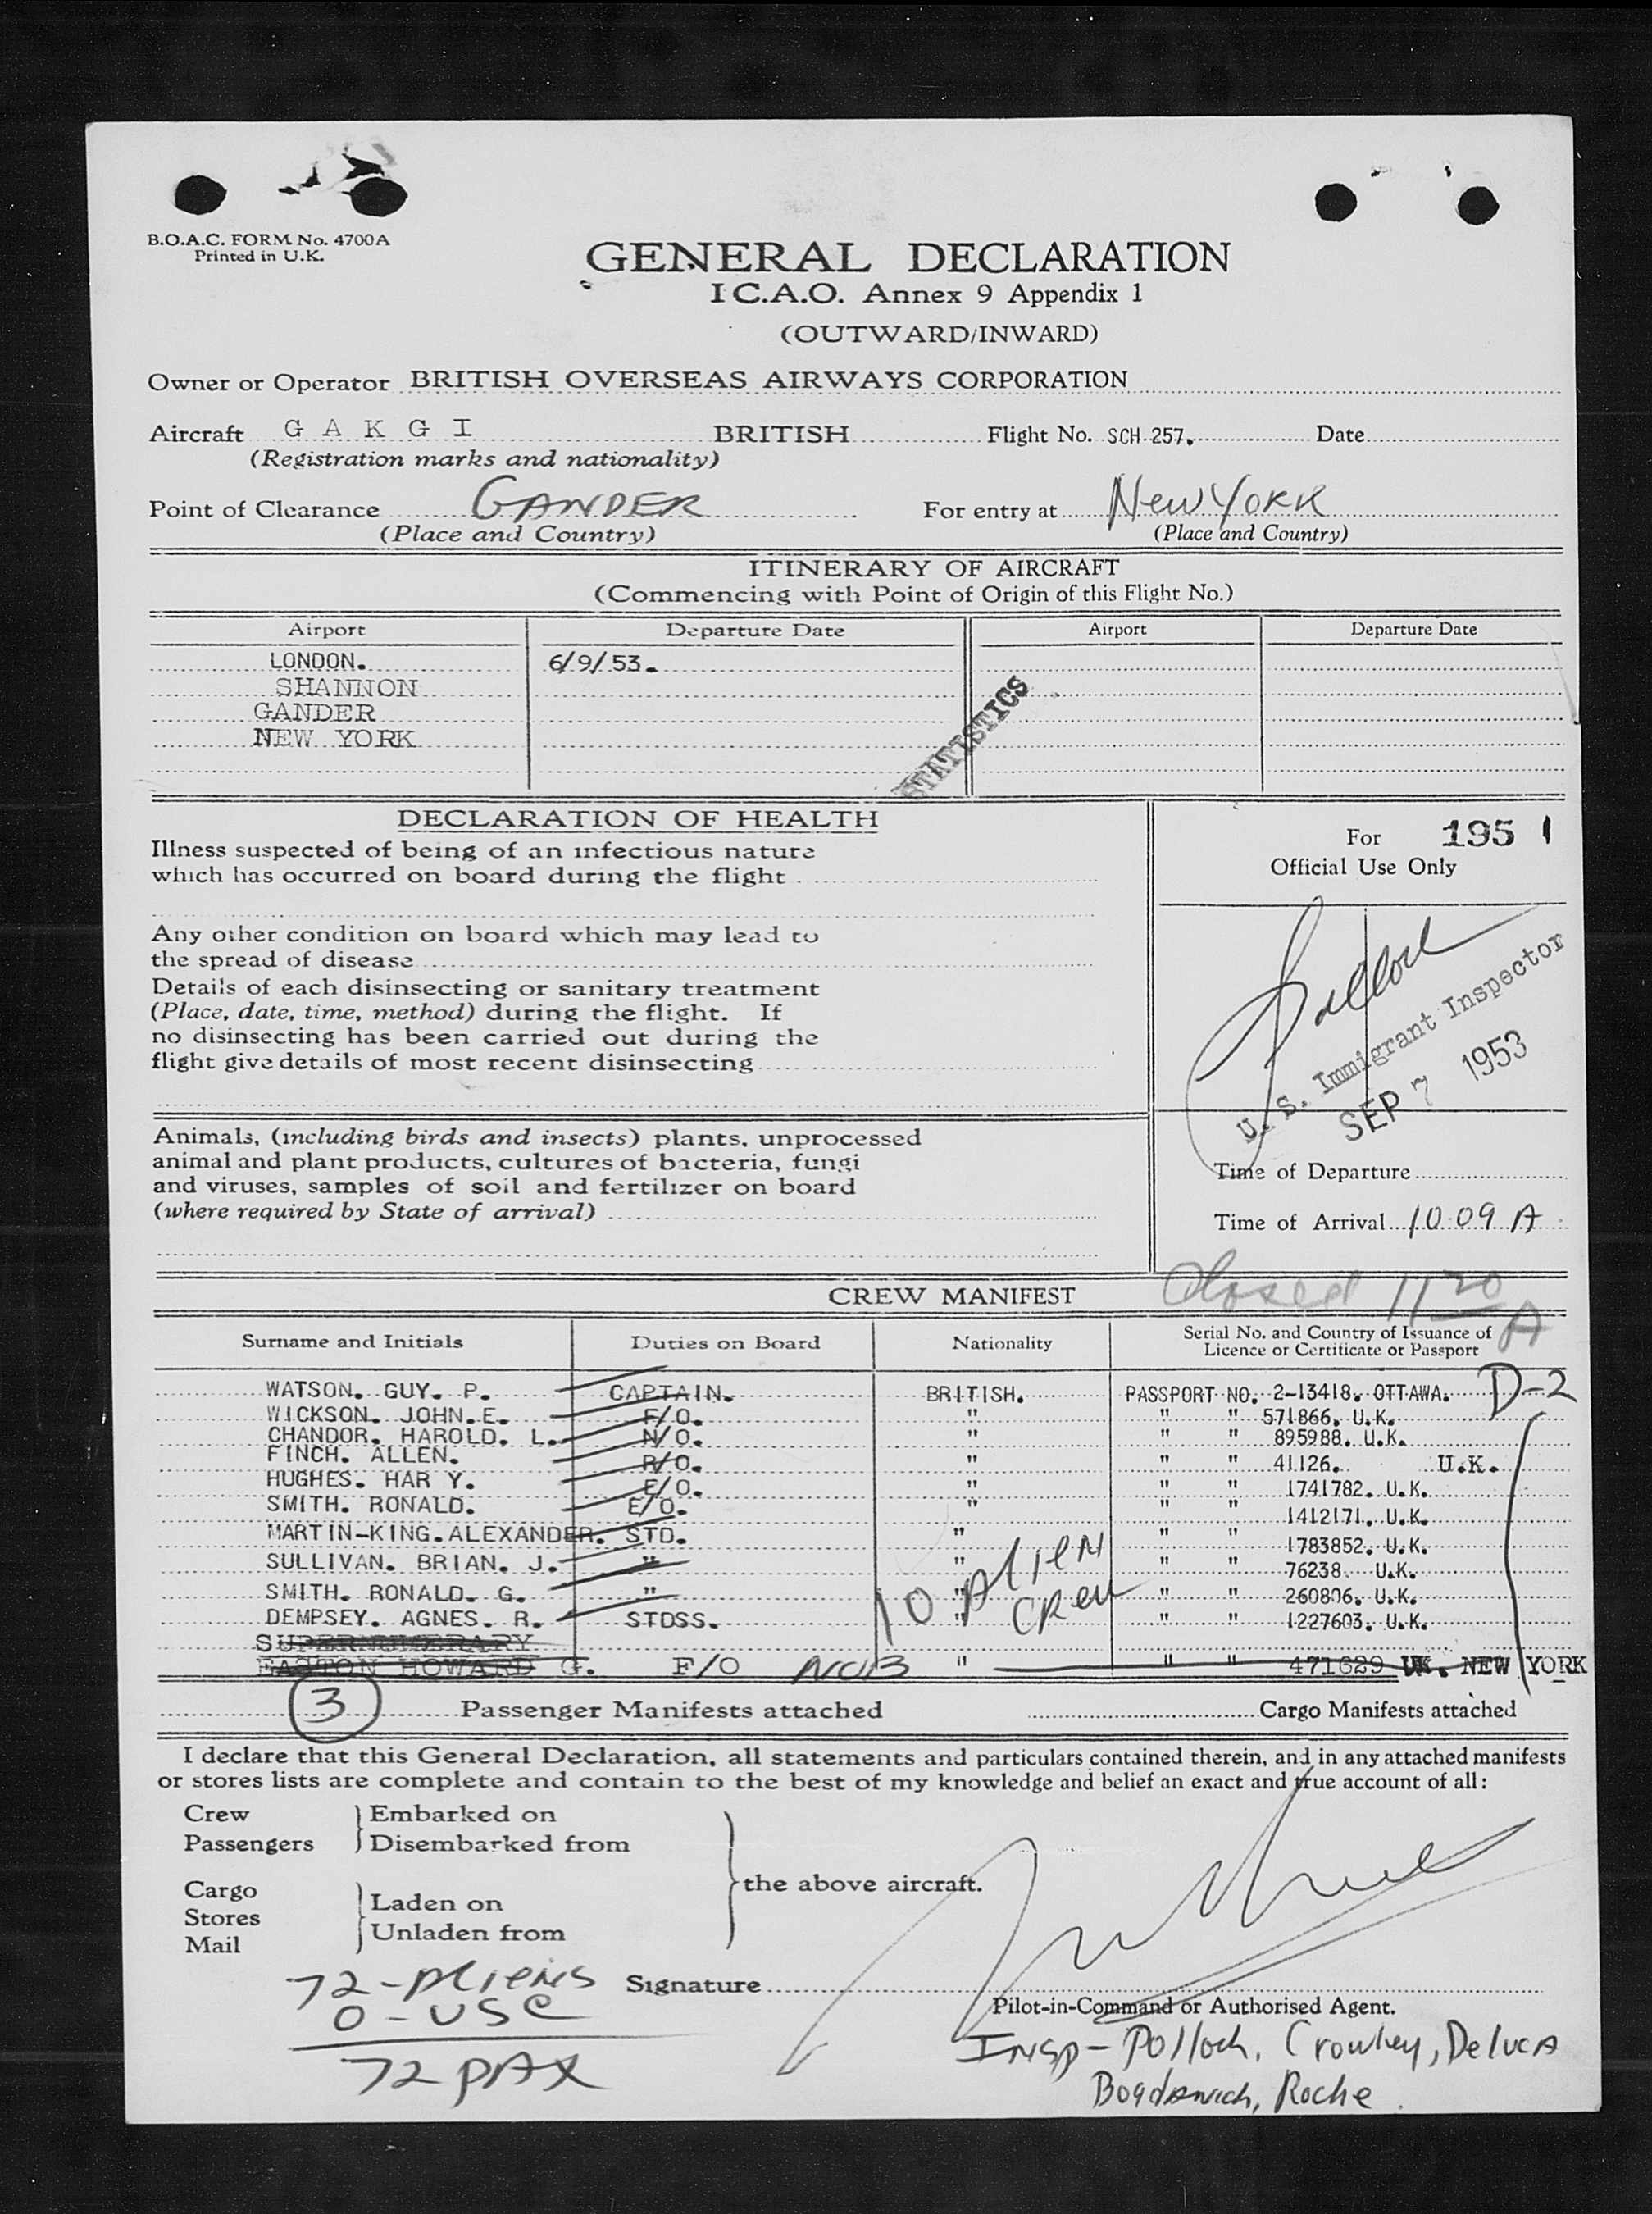 B.O.A.C. FORM No. 4700A
Printed in U.K.
GENERAL DECLARATION
I C.A.O. Annex 9 Appendix 1
(OUTWARD/INWARD)
Owner or Operator BRITISH OVERSEAS AIRWAYS CORPORATION
Aircraft G A K G I BRITISH Flight No. SCH 257. Date
(Registration marks and nationality)
Point of Clearance GANDER For entry at New YORK
(Place and Country) (Place and Country)
ITINERARY OF AIRCRAFT
(Commencing with Point of Origin of this Flight No.)
Airport Departure Date Airport Departure Date
LONDON. 6/9/53.
SHANNON
GANDER
NEW YORK
STATISTICS
DECLARATION OF HEALTH
Illness suspected of being of an infectious nature
which has occurred on board during the flight
Any other condition on board which may lead to
the spread of disease
Details of each disinsecting or sanitary treatment
(Place, date, time, method) during the flight. If
no disinsecting has been carried out during the
flight give details of most recent disinsecting
For 195 1
Official Use Only
Pollock
U. S. Immigrant Inspector
SEP 7 1953
Animals, (including birds and insects) plants, unprocessed
animal and plant products, cultures of bacteria, fungi
and viruses, samples of soil and fertilizer on board
(where required by State of arrival)
Time of Departure
Time of Arrival 10 09 A
Closed 11 20 A
CREW MANIFEST
Surname and Initials Duties on Board Nationality Serial No. and Country of Issuance of
Licence or Certificate or Passport
WATSON. GUY. P. CAPTAIN. BRITISH. PASSPORT NO. 2-13418. OTTAWA. D-2
WICKSON. JOHN.E. F/O. " " " 571866. U.K.
CHANDOR. HAROLD. L. N/O. " " " 895988. U.K.
FINCH. ALLEN. R/O. " " " 41126. U.K.
HUGHES. HAR Y. E/O. " " " 1741782. U.K.
SMITH. RONALD. E/O. " " " 1412171. U.K.
MARTIN-KING.ALEXANDER. STD. " " " 1783852. U.K.
SULLIVAN. BRIAN. J. " " " " 76238. U.K.
SMITH. RONALD. G. " " " " 260806. U.K.
DEMPSEY. AGNES. R. STDSS. " " " 1227603. U.K.
10 Alien
Crew
SUPERNUMERARY
EASTON HOWARD G. F/O " " " 471629 UK. NEW YORK
3 Passenger Manifests attached Cargo Manifests attached
I declare that this General Declaration, all statements and particulars contained therein, and in any attached manifests
or stores lists are complete and contain to the best of my knowledge and belief an exact and true account of all:
Crew Embarked on
Passengers Disembarked from
the above aircraft.
Cargo Laden on
Stores Unladen from
Mail
72-Aliens
0-USC
72 PAX
Signature
Pilot-in-Command or Authorised Agent.
Insp- Pollock, Crowley, DelucA
Bogdanvich, Roche